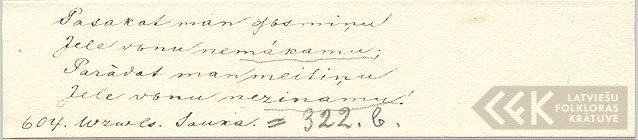 Pasakat man dosmiņu
Jele vonu nemākamu;
Parādat man meitiņu
Jele vonu nezinamu!
604. Wzwls. Sauka. = 322. b.
LATVIEŠU
FOLKLORAS
KRĀTUVE